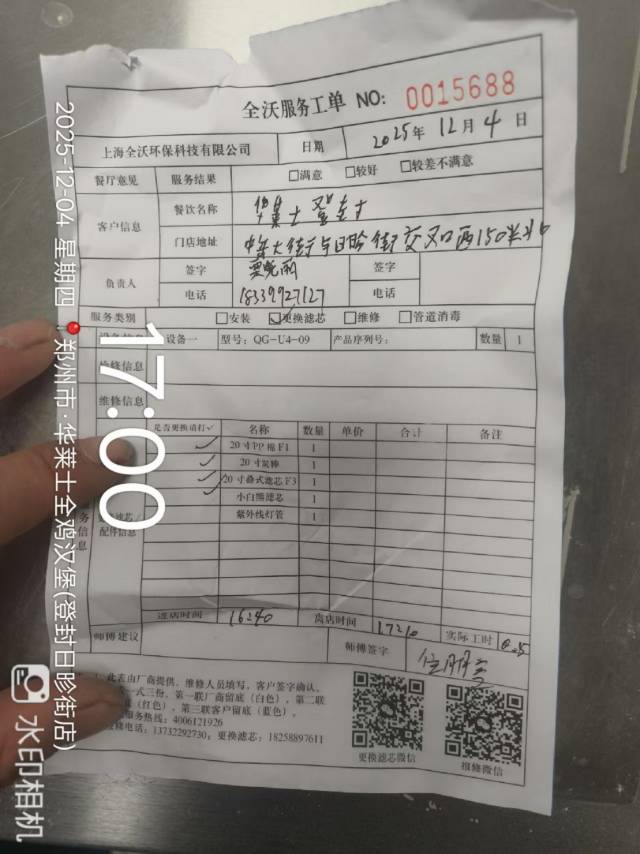 全沃服务工单 NO: 0015688
上海全沃环保科技有限公司 日期 2025年 12月 4日
餐厅意见 服务结果 □满意 □较好 □较差不满意
客户信息 餐饮名称 华莱士登封
门店地址 中岳大街与日昣街交叉口西150米北
负责人 签字 签字
电话 18339927127 电话
服务类别 □安装 ☑更换滤芯 □维修 □管道消毒
设备信息 设备一 型号: QG-U4-09 产品序列号: 数量 1
检修信息
维修信息
是否更换请打✓ 名称 数量 单价 合计 备注
✓ 20寸PP棉F1 1
✓ 20寸炭棒 1
✓ 20寸叠式滤芯F3 1
✓ 小白熊滤芯 1
紫外线灯管 1
服务信息 更换滤芯/配件信息
进店时间 16:40 离店时间 17:10 实际工时 0.5
师傅建议 师傅签字
此表由厂商提供、维修人员填写，客户签字确认。
一式三份，第一联厂商留底（白色），第二联
（红色），第三联客户留底（蓝色）。
服务热线: 4006121926
报修电话: 13732292730; 更换滤芯: 18258897611
更换滤芯微信 报修微信
17:00
2025-12-04 星期四
郑州市·华莱士全鸡汉堡(登封日昣街店)
水印相机